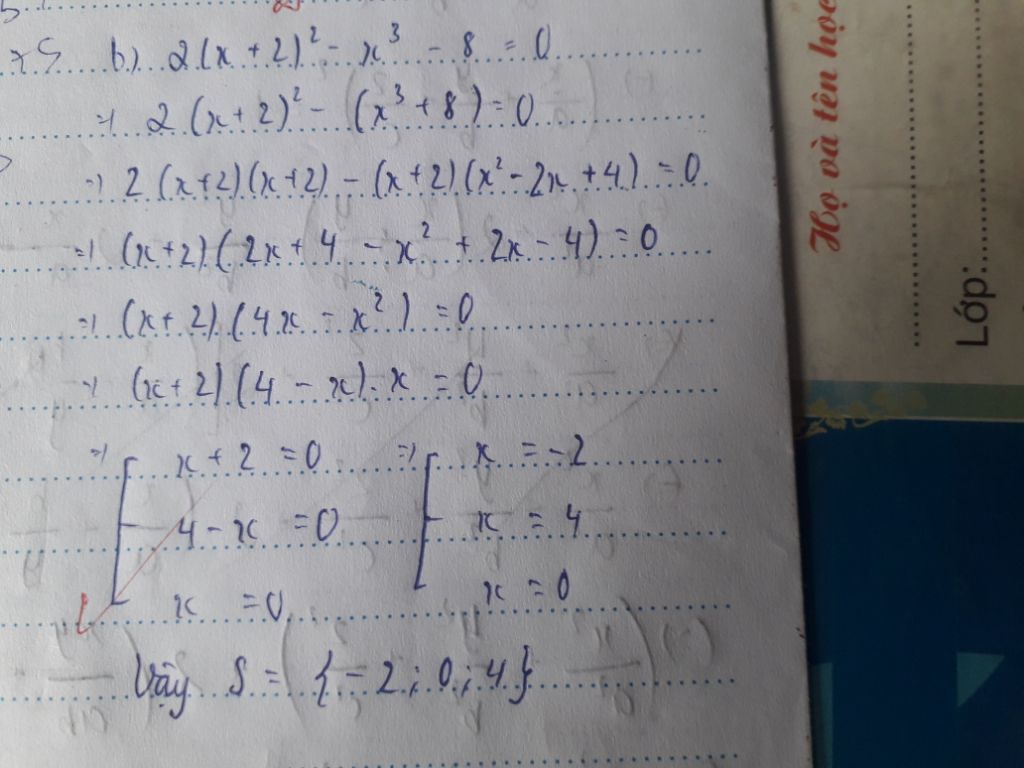 b) 2(x + 2)² - x³ - 8 = 0
=> 2 (x + 2)² - (x³ + 8) = 0
=> 2 (x+2)(x+2) - (x+2)(x² - 2x + 4) = 0
=> (x+2)(2x + 4 - x² + 2x - 4) = 0
=> (x+2)(4x - x²) = 0
=> (x+2)(4 - x).x = 0
=> [ x + 2 = 0 => [ x = -2
4 - x = 0 x = 4
x = 0 x = 0
Vậy S = {-2; 0; 4}
Họ và tên học
Lớp: